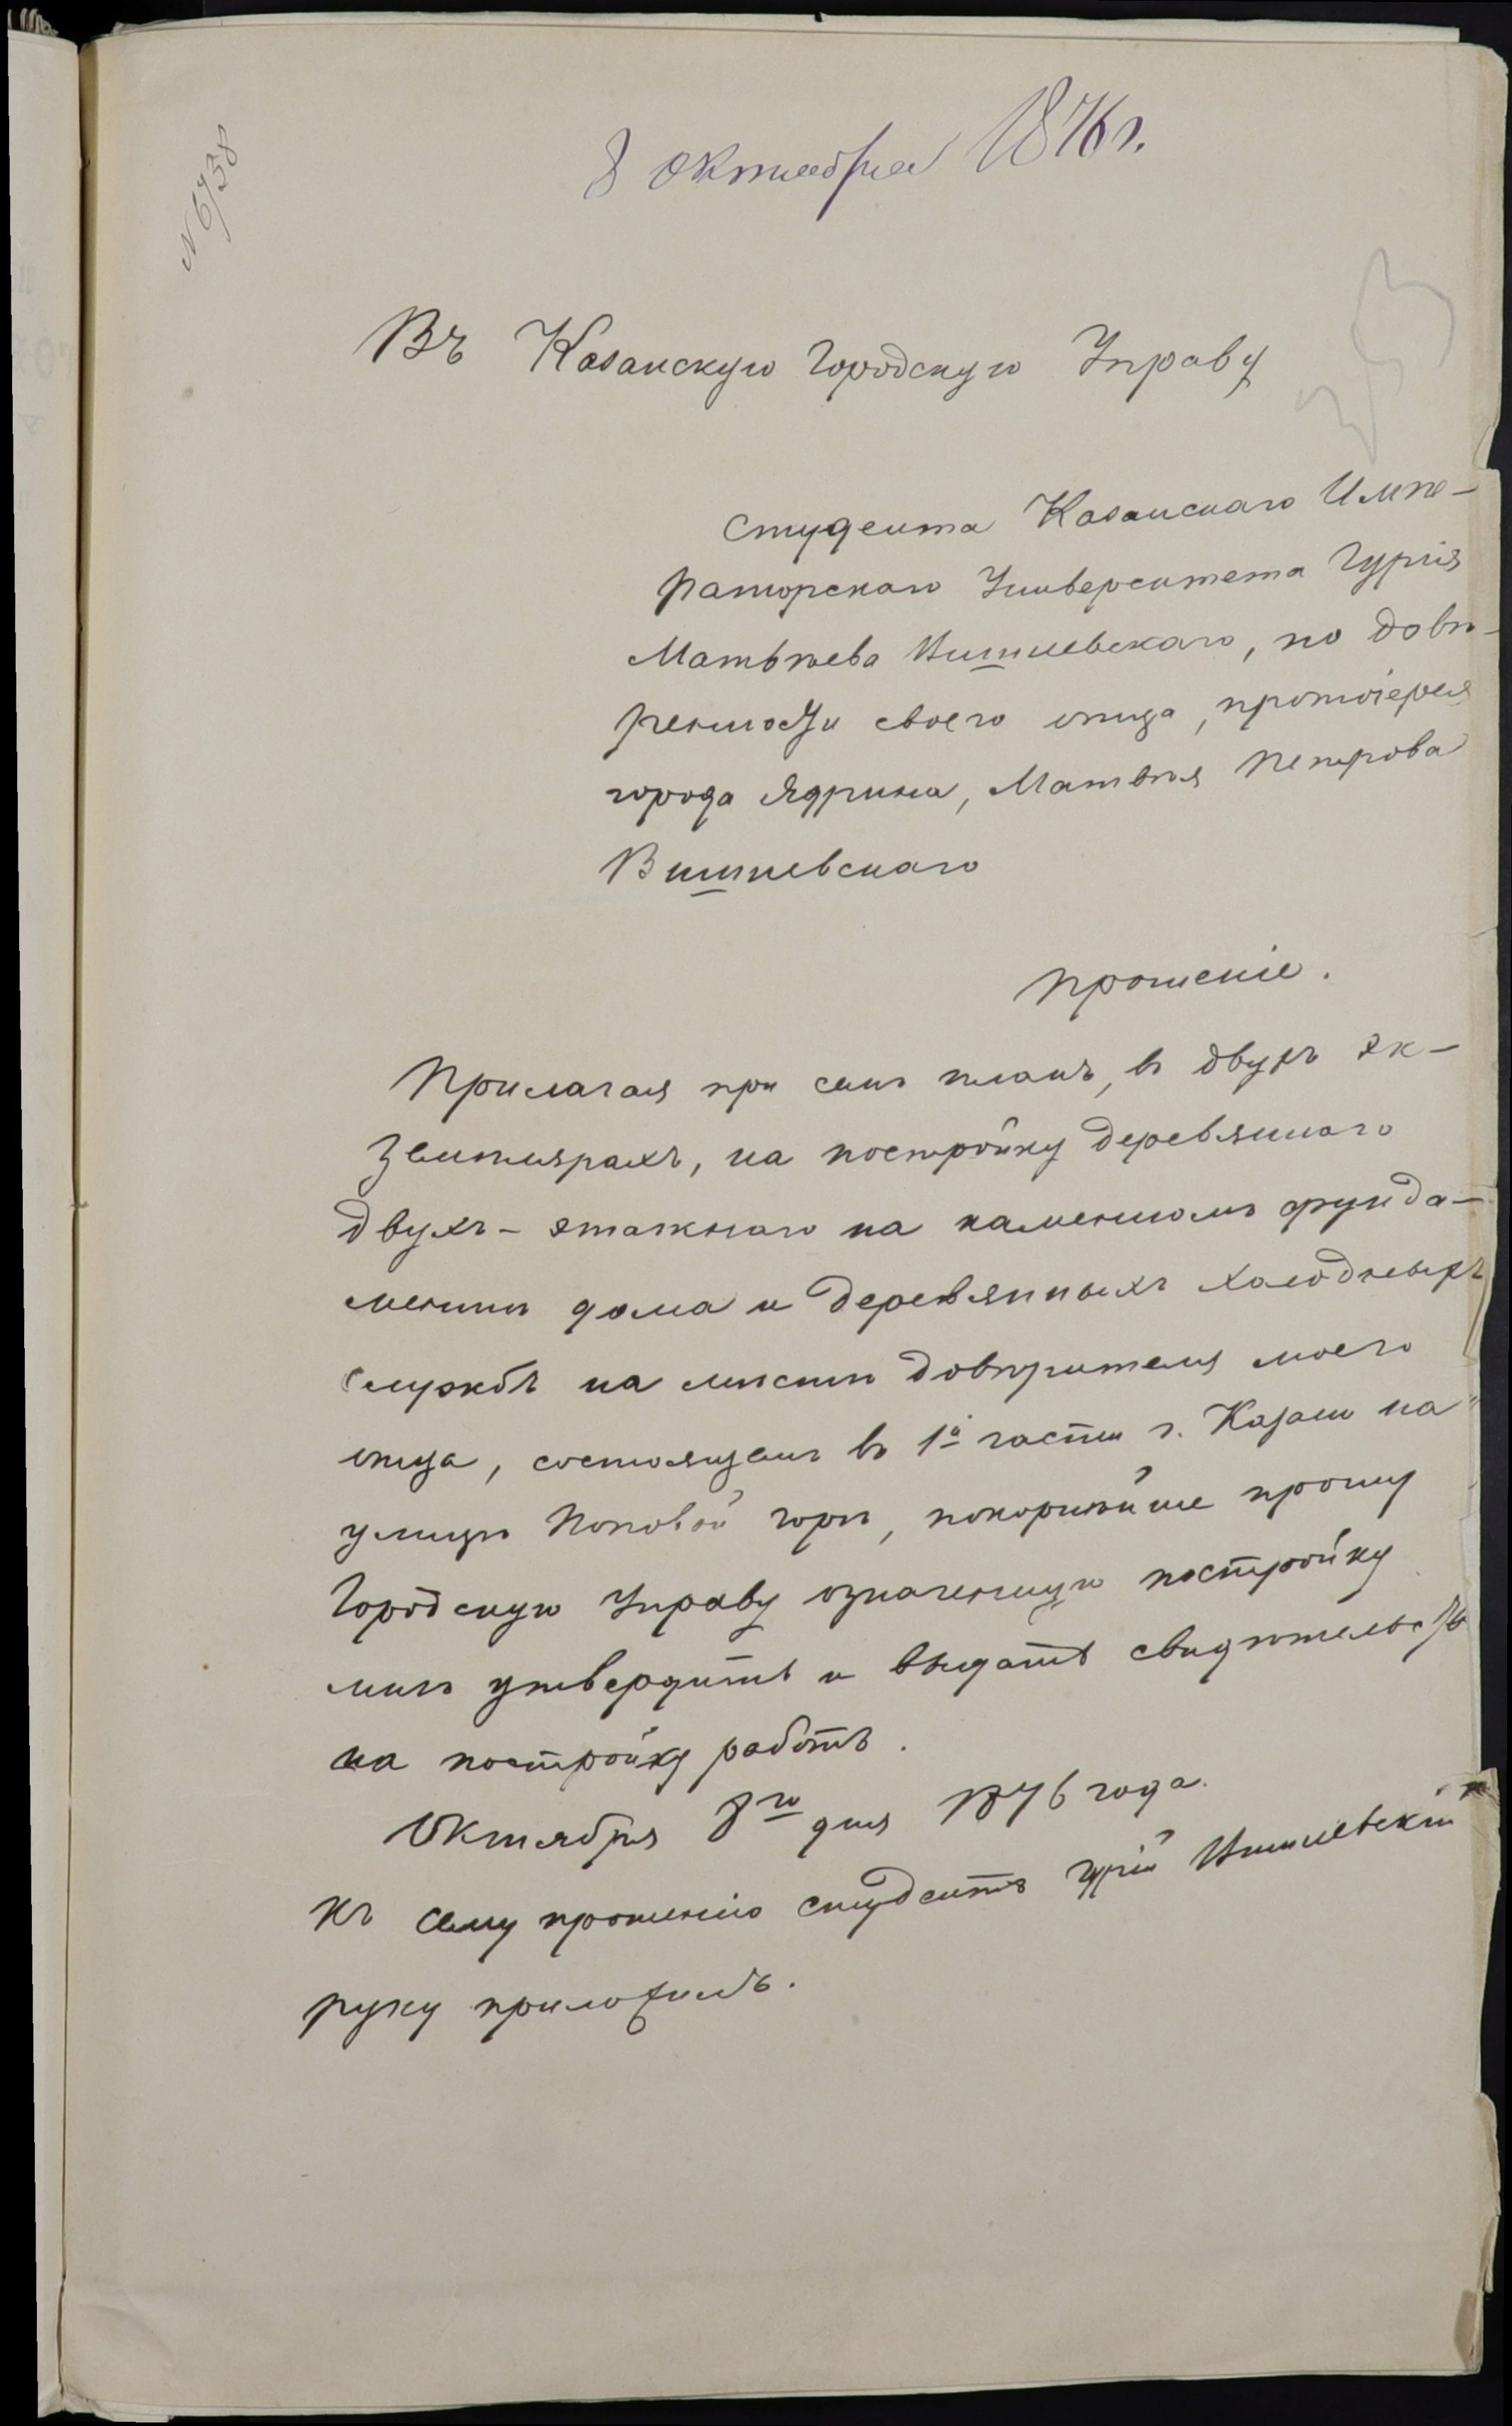 N 6738
8 октября 1876 г.
Въ Казанскую Городскую Управу
Студента Казанскаго Импе-
раторскаго Университета Гурія
Матвѣева Вишневскаго, по довѣ-
ренности своего отца, протоіерея
города Ядрина, Матвѣя Петрова
Вишневскаго
прошеніе.
Прилагая при семъ планъ, въ двухъ эк-
земплярахъ, на постройку деревяннаго
двухъ-этажнаго на каменномъ фунда-
ментѣ дома и деревянныхъ холодныхъ
службъ на мѣстѣ довѣрителя моего
отца, состоящемъ въ 1й части г. Казани на
улицѣ Поповой горѣ, покорнѣйше прошу
Городскую Управу означенную постройку
мнѣ утвердить и выдать свидѣтельство
на постройку работъ.
Октября 8го дня 1876 года.
Къ сему прошенію студентъ Гурій Вишневскій
руку приложилъ.